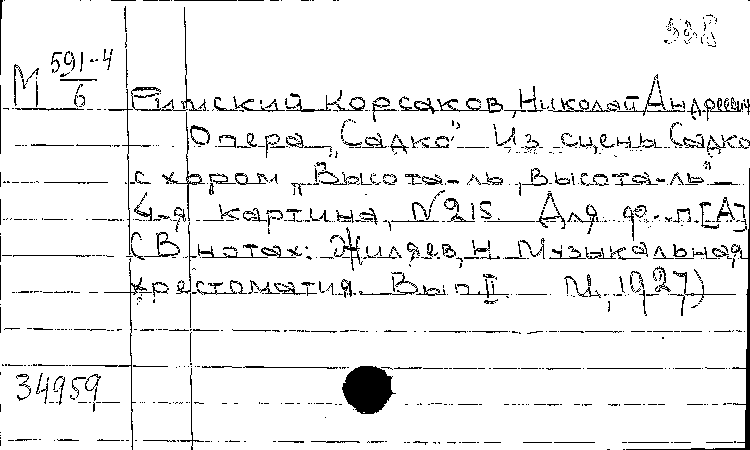 М 591-4
6
Римский Корсаков, Николай Андреевич
Опера „Садко" Из сцены Садко
с хором „Высота-ль, высота-ль"
4-я картина, N 215. Для ф.-п. [А]
(В нотах: Жиляев, Н. Музыкальная
хрестоматия. Вып. II. М., 1927)
34959